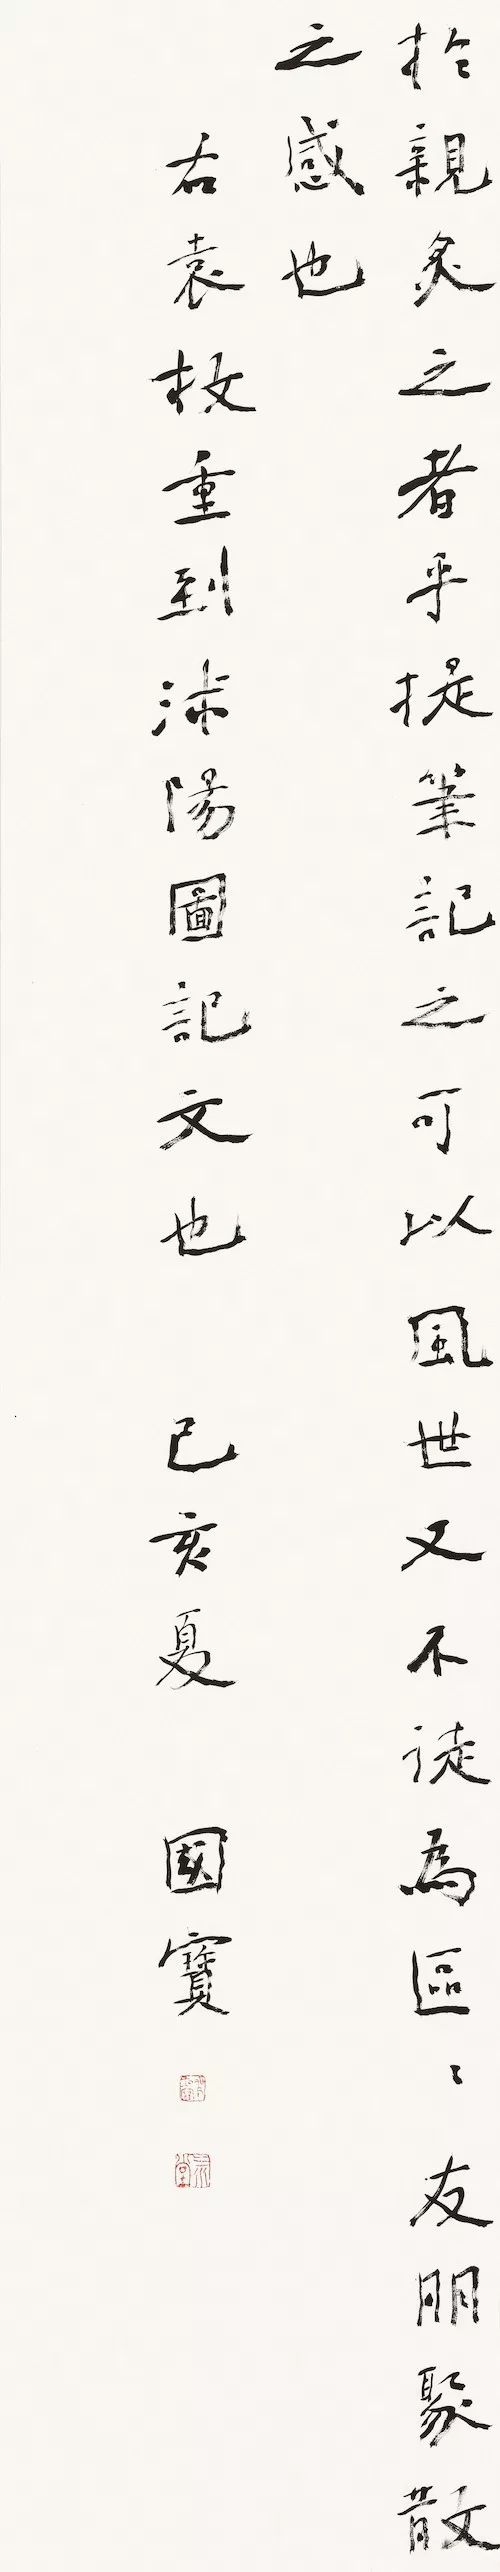 於親炙之者乎提筆記之可以風世又不徒為區〻友朋聚散
之感也
右袁枚重到沭陽圖記文也 己亥夏 國寶